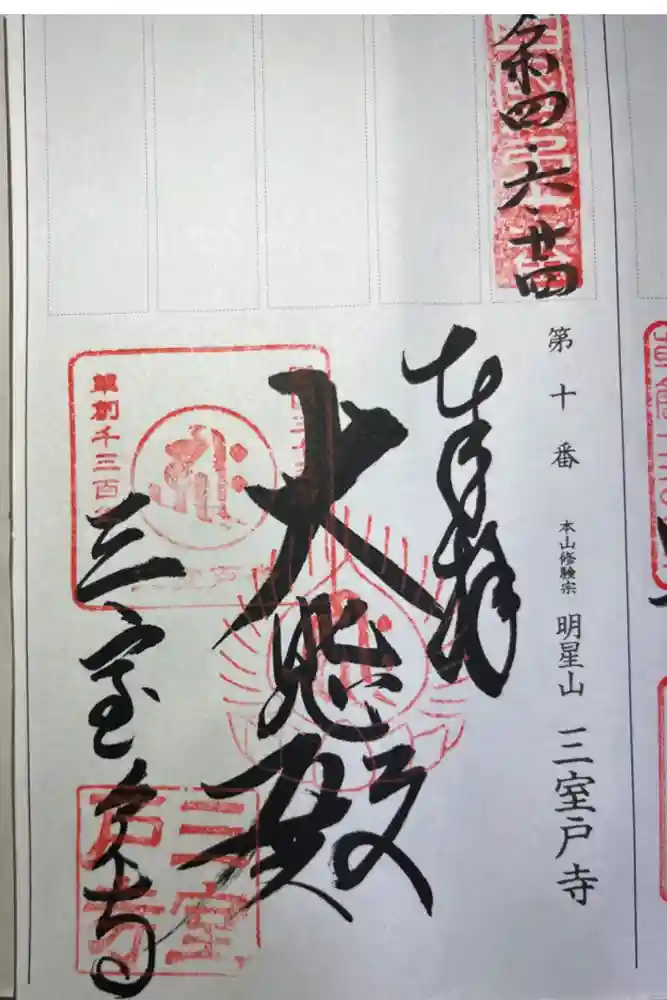 令四・六・廿四
第十番 本山修験宗 明星山 三室戸寺
奉拝
大悲殿
三室戸寺
草創千三百
三室
戸寺